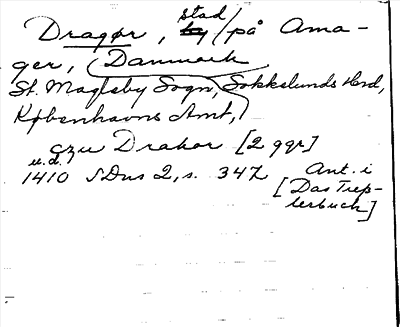 Dragør, stad / på Ama-
ger, Danmark
St. Magleby Sogn, Sokkelunds Hrd,
Københavns Amt,
czu Drakør [2 ggr]
u.d.
1410 SDns 2, s. 347 Ant. i
[Das Trep-
lerbuch]